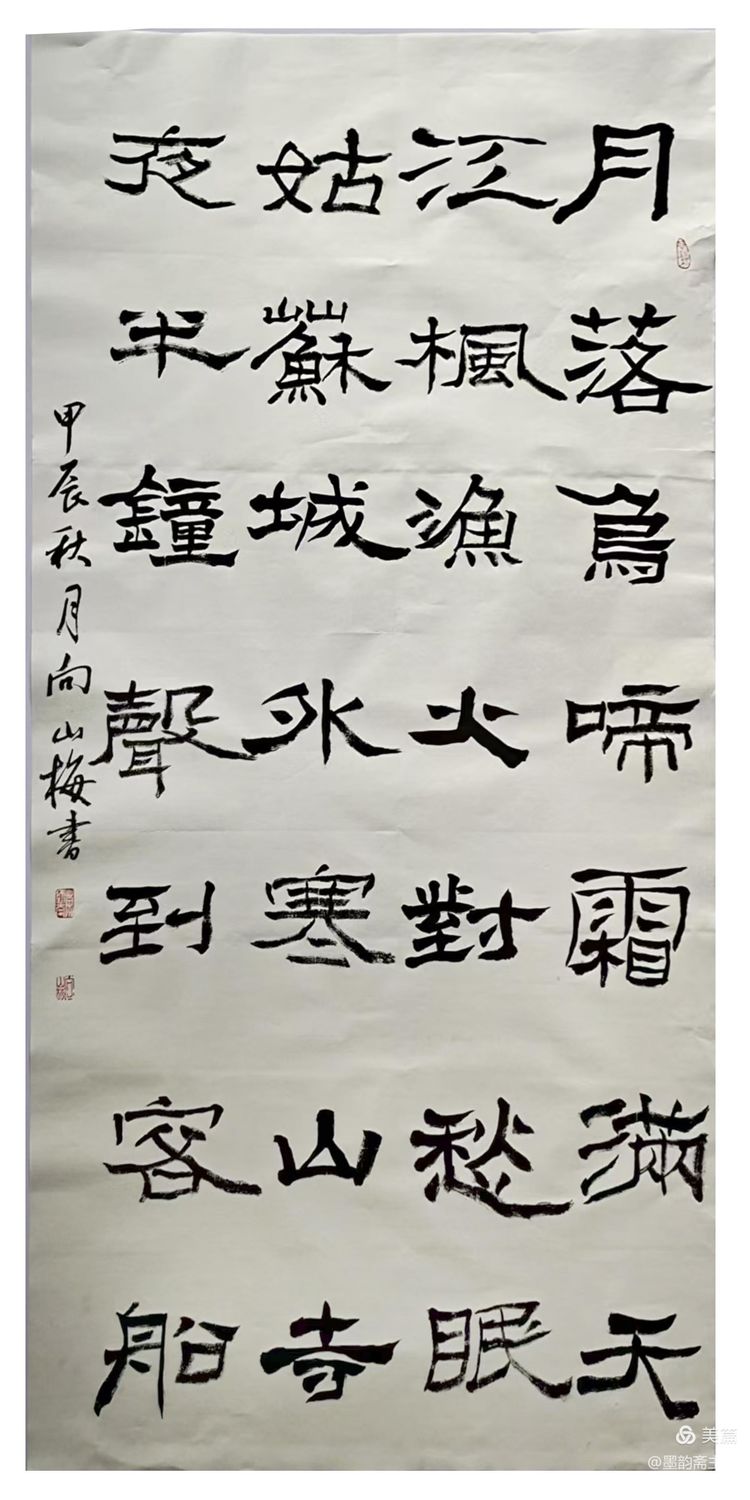 月落烏啼霜滿天
江楓漁火對愁眠
姑蘇城外寒山寺
夜半鐘聲到客船
甲辰秋月向山梅书
美篇
@墨韵斋主